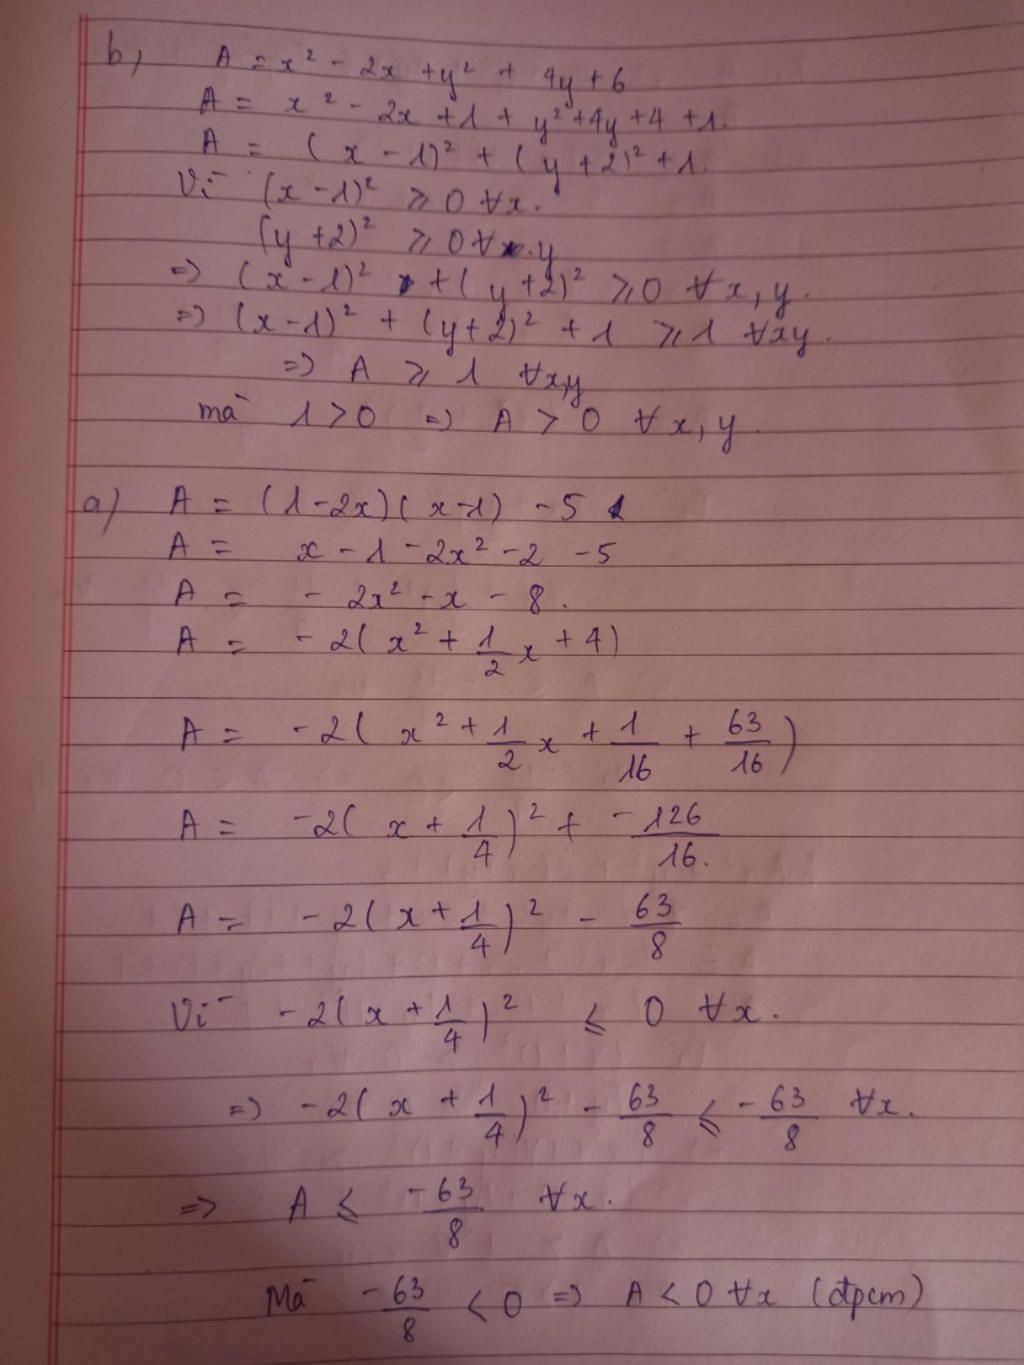 b) A = x² - 2x + y² + 4y + 6
A = x² - 2x + 1 + y² + 4y + 4 + 1.
A = (x - 1)² + (y + 2)² + 1.
Vì (x - 1)² ⩾ 0 ∀x.
(y + 2)² ⩾ 0 ∀ y
=> (x - 1)² + (y + 2)² ⩾ 0 ∀x, y.
=> (x - 1)² + (y + 2)² + 1 ⩾ 1 ∀xy.
=> A ⩾ 1 ∀x,y
mà 1 > 0 => A > 0 ∀x, y.
a) A = (1 - 2x)(x - 1) - 5
A = x - 1 - 2x² - 2 - 5
A = - 2x² - x - 8.
A = - 2(x² + 1/2 x + 4)
A = - 2(x² + 1/2 x + 1/16 + 63/16)
A = - 2(x + 1/4)² + -126/16.
A = - 2(x + 1/4)² - 63/8
Vì - 2(x + 1/4)² ⩽ 0 ∀x.
=> - 2(x + 1/4)² - 63/8 ⩽ - 63/8 ∀x.
=> A ⩽ -63/8 ∀x.
Mà -63/8 < 0 => A < 0 ∀x (đpcm)